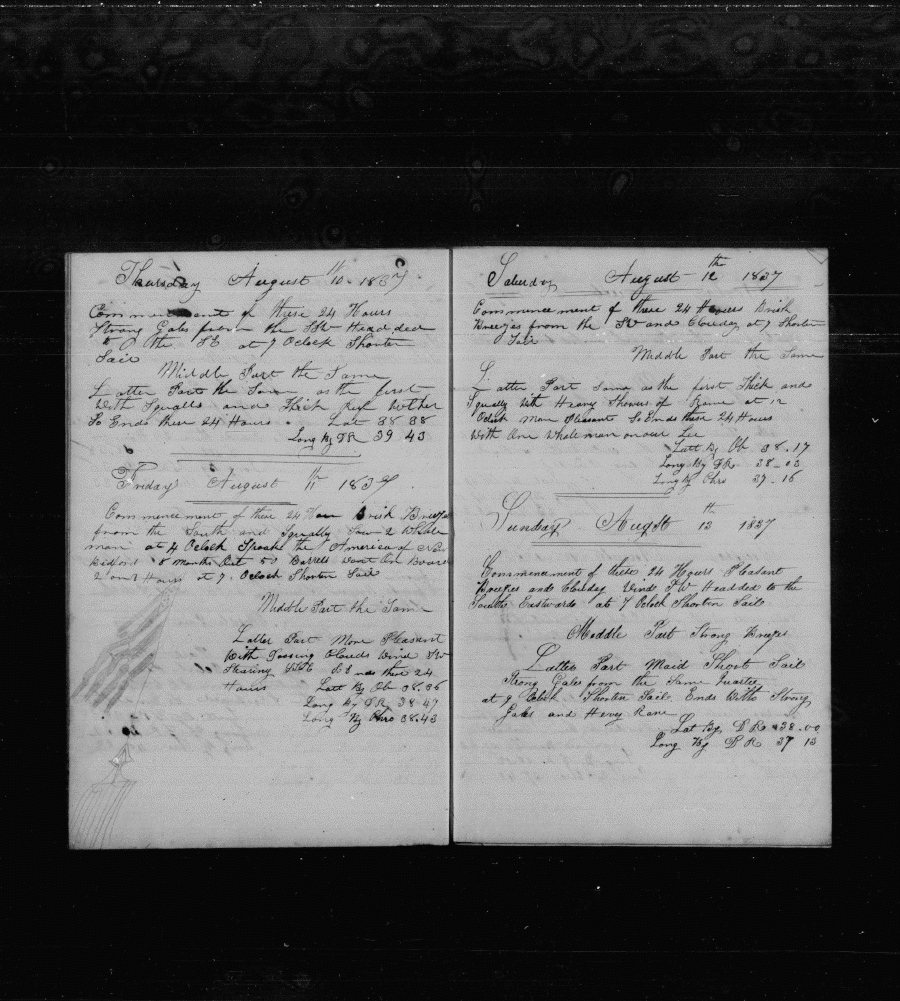 Thursday August 10th 1837
Commencement of these 24 Hours
Strong Gales from the SW Headded
to the SE at 7 Oclock Shorten
Sail
Middle Part the Same
Latter Part the Same as the first
With Squalls and Thick
So Ends these 24 Hours Lat 38 38
Long By DR 39 43
Friday August 11th 1837
Commencement of these 24 Hours Brisk Breezes
from the South and Squally Saw 2 Whale
man at 4 Oclock Spoak the America of New
Bedford 8 Months Out 50 Barrels Went On Board
2 Hours at 7 Oclock Shorten Sail
Middle Part the Same
Latter Part More Pleasant
With Passing Clouds Wind SW
Stearing Ends these 24
Hours Latt By Ob 38.36
Long By DR 38-47
Long By Chro 38.43
Saturday August 12th 1837
Commencement of these 24 Hours Brisk
Breezes from the SW and Cloudey at 7 Shorten
Sail
Middle Part the Same
Latter Part Same as the first Thick and
Squally With Heavy Showers of Rane at 12
Oclock More Pleasant So Ends these 24 Hours
With One Whaleman on our Lee
Latt By Ob 38.17
Long By DR 38-03
Long By Chro 37-16
Sunday Augst 13th 1837
Commencement of these 24 Hours Pleasant
Breezes and Cloudey Wind SW Headded to the
Southe Eastwards at 7 Oclock Shorten Sail
Meddle Part Strong Breezes
Latter Part Maid Short Sail
Strong Gales from the Same Quarter
at 9 Oclock Shorten Sail Ends With Strong
Gales and Hevy Rane
Lat By DR 38.00
Long By DR 37 13